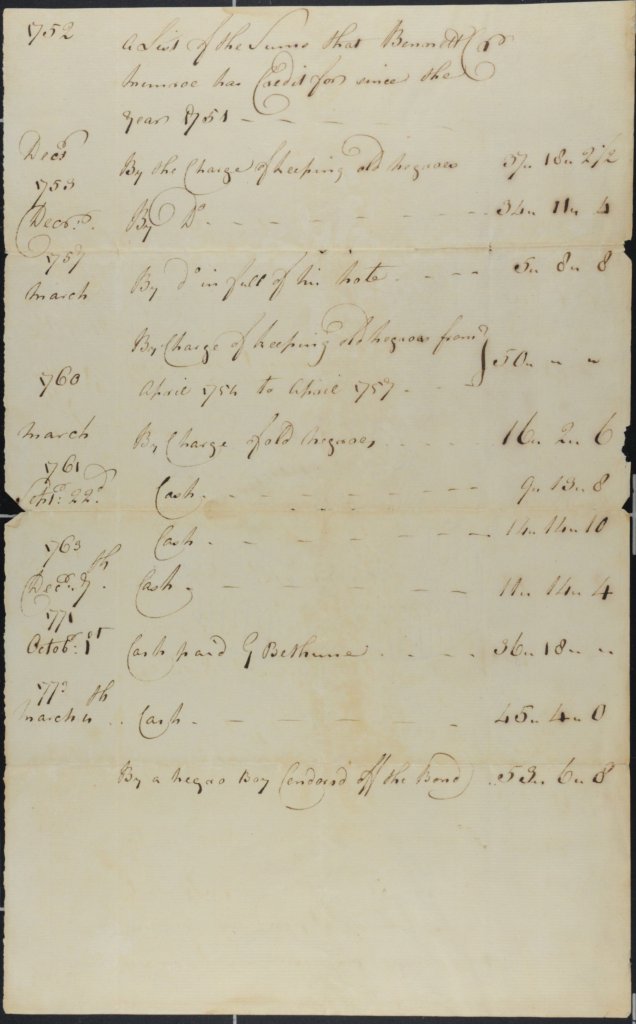 1752
A List of the Sums that Bennett &
Munroe has Credit for since the
Year 1751 - - -
Decr By the Charge of keeping old negroes 37 " 18 " 2 1/2
1753
Decr. By Do - - - 34 " 11 " 4
1757
March By do in full of his note - - - 5 " 8 " 8
By Charge of keeping old negroes from } 50 " " "
April 1754 to April 1757 - -
1760
March By Charge of old Negroes 16 " 2 " 6
1761
Septr. 22d. Cash - - - 9 " 13 " 8
Cash - - - 14 " 14 " 10
1763
Decr. 7th. Cash - - - 11 " 14 " 4
1771
Octobr. 1st Cash paid G Bethune - - - 36 " 18 " "
177
March th Cash - - - 45 " 4 " 0
By a negro Boy Endorsd off the Bond 53 " 6 " 8